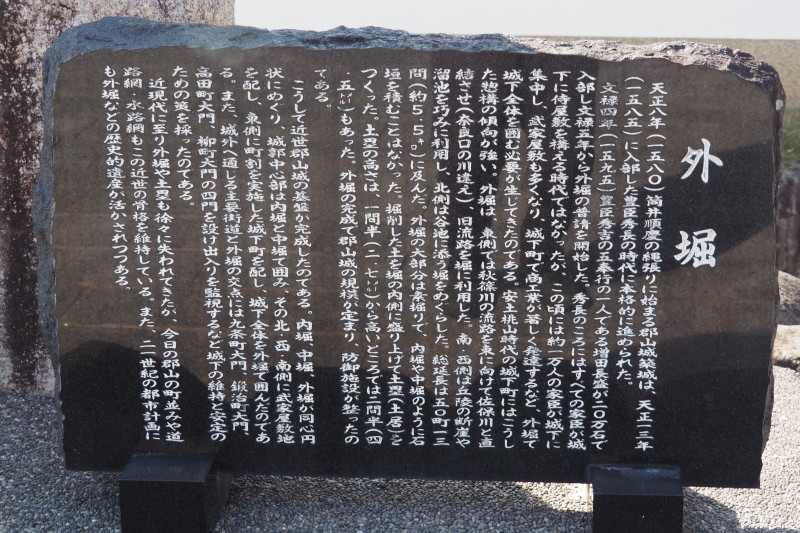 外堀
天正八年(一五八〇)筒井順慶の縄張りに始まる郡山城築城は、天正一三年
(一五八五)に入部した豊臣秀長の時代に本格的に進められた。
文禄四年(一五九五)豊臣秀吉の五奉行の一人である増田長盛が二〇万石で
入部し文禄五年から外堀の普請を開始した。秀長のころにはすべての家臣が城
下に侍屋敷を構える時代ではなかったが、この頃には約一万人の家臣が城下に
集中し、武家屋敷も多くなり、城下町で商工業が著しく発達するなど、外堀で
城下全体を囲む必要が生じてきたのである。安土桃山時代の城下町にはこうし
た惣構の傾向が強い。外堀は、東側では秋篠川の流路を東に向けて佐保川と直
結させ(奈良口の川違え)、旧流路を堀に利用した。南・西側は丘陵の断崖や
溜池を巧みに利用し、北側は谷池に添う堀をめぐらした。総延長は五〇町一三
間(約5.5㌔)に及んだ。外堀の大部分は素堀りで、内堀や中堀のように石
垣を積むことはなかった。掘削した土を堀の内側に盛り上げて土塁(土居)を
つくった。土塁の高さは、一間半(二・七㍍)から高いところでは二間半(四
・五㍍)もあった。外堀の完成で郡山城の規模も定まり、防御施設が整ったの
である。
こうして近世郡山城の基盤が完成したのである。内堀、中堀、外堀が同心円
状にめぐり、城郭中心部は内堀と中堀で囲み、その北・西・南側に武家屋敷地
を配し、東側に町割を実施した城下町を配し、城下全体を外堀で囲んだのであ
る。また、城外へ通じる主要街道と外堀の交点には九条町大門、鍛冶町大門、
高田町大門、柳町大門の四門を設け出入りを監視するなど城下の維持と安定の
ための策を採ったのである。
近現代に至り外堀や土塁も徐々に失われてきたが、今日の郡山の町並みや道
路網・水路網もこの近世の骨格を維持している。また、二一世紀の都市計画に
も外堀などの歴史的遺産が活かされつつある。